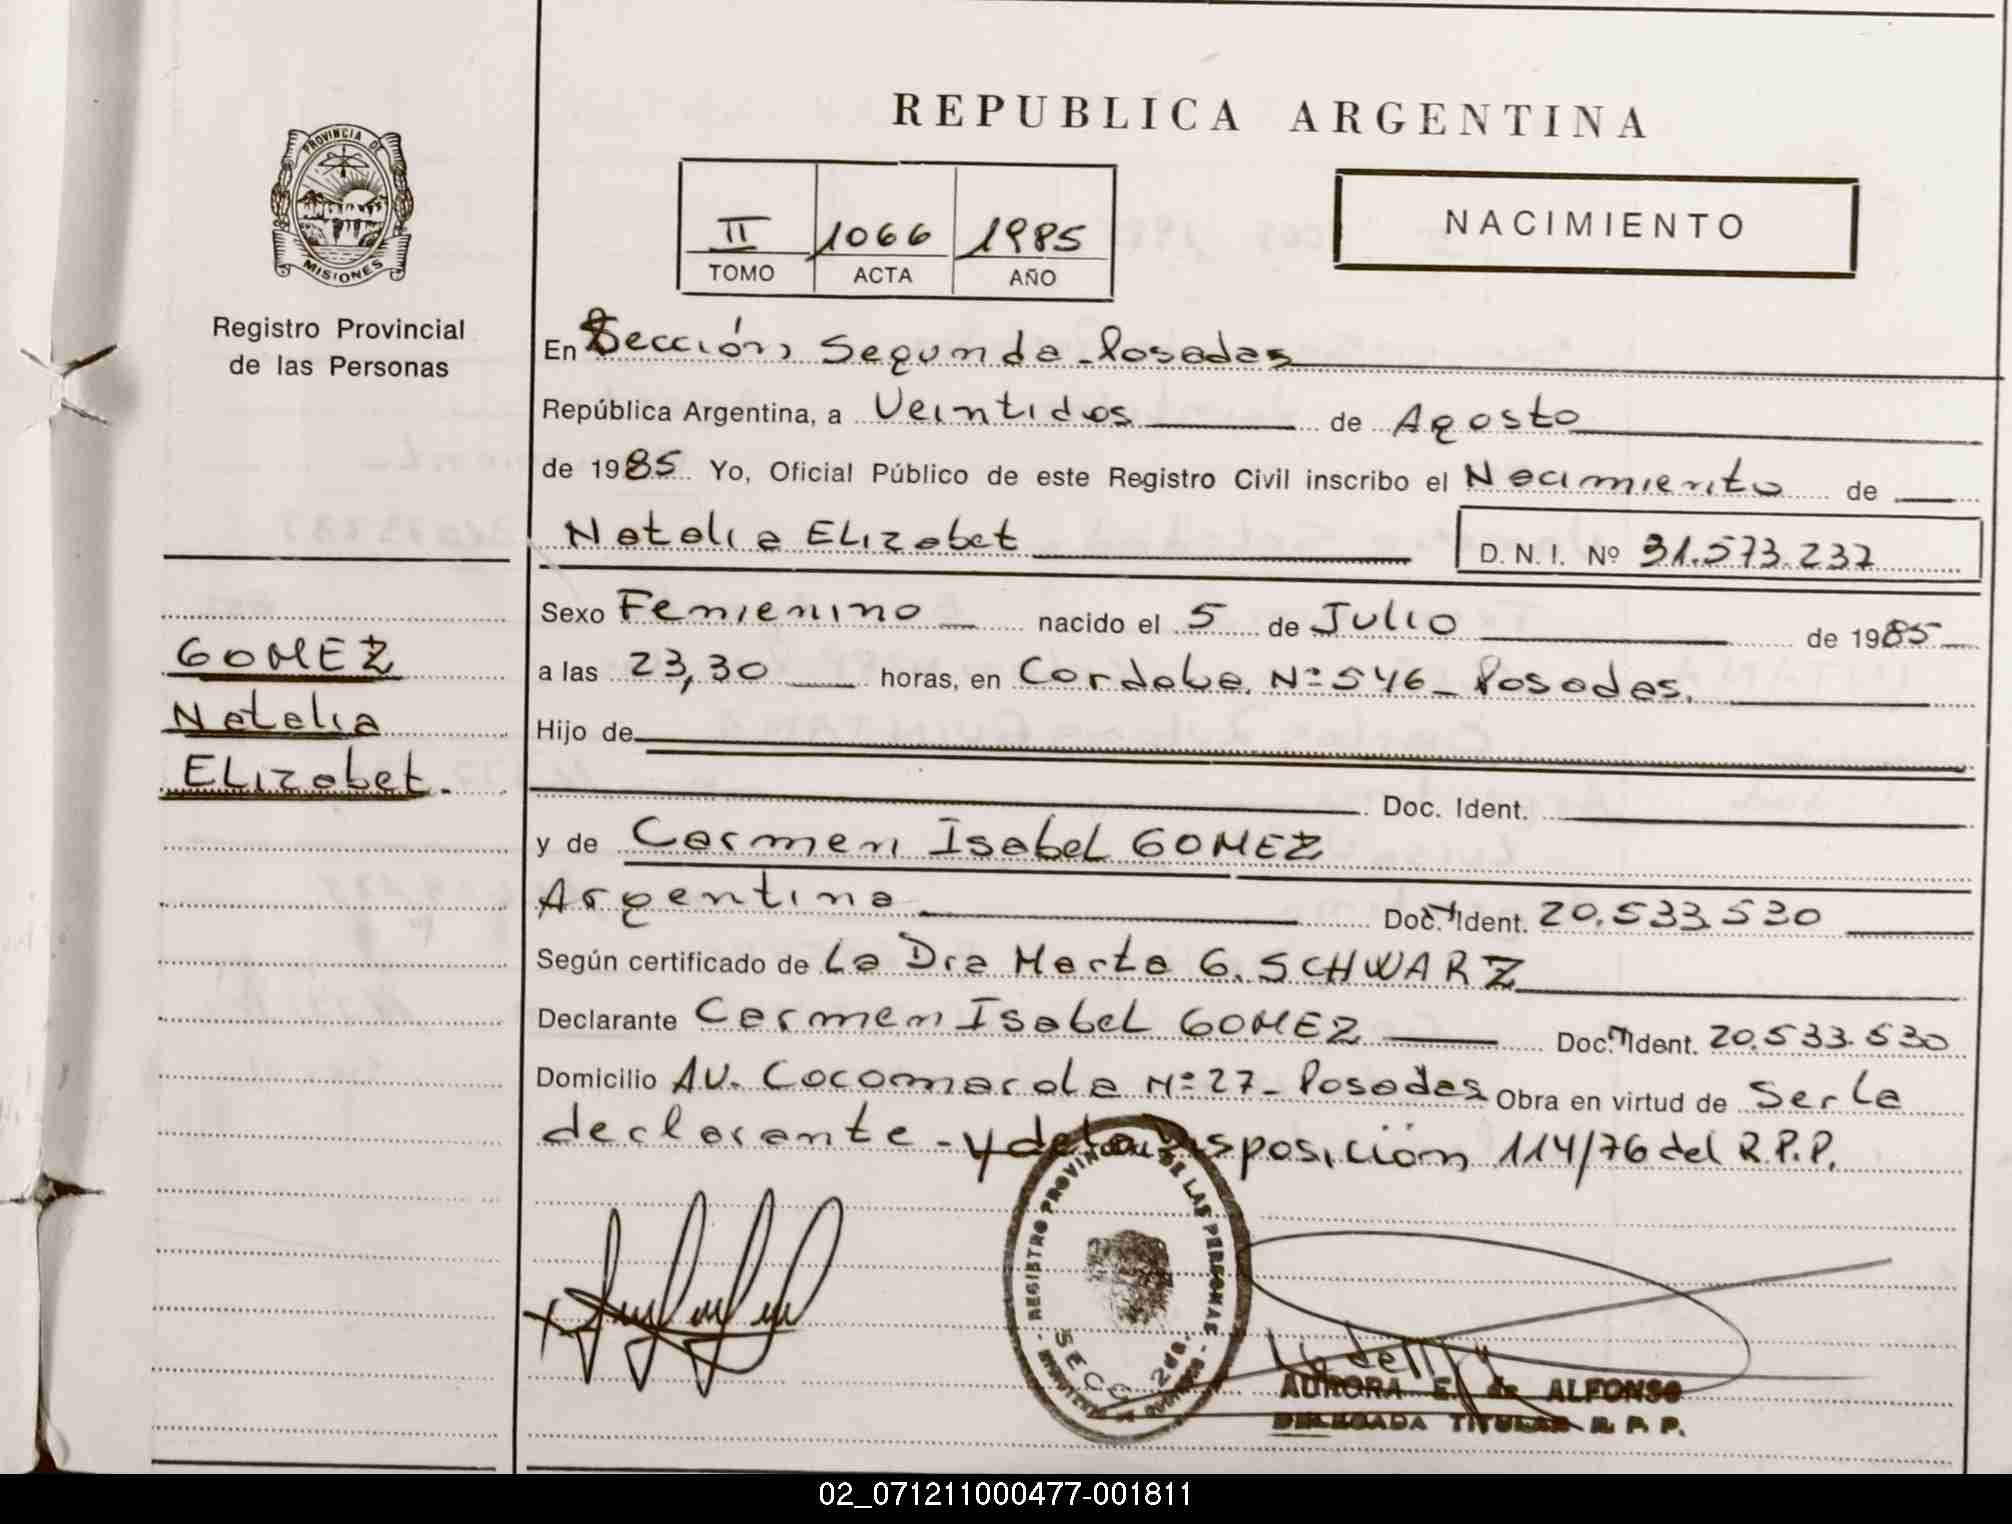 PROVINCIA DE
MISIONES
Registro Provincial
de las Personas
GOMEZ
Natalia
Elizabet.
REPUBLICA ARGENTINA
II 1066 1985
TOMO ACTA AÑO
NACIMIENTO
En Sección Segunda - Posadas
República Argentina, a Veintidos de Agosto
de 1985 Yo, Oficial Público de este Registro Civil inscribo el Nacimiento de
Natalia Elizabet D. N. I. Nº 31.573.237
Sexo Femienino nacido el 5 de Julio de 1985
a las 23,30 horas, en Cordoba Nº 546 - Posadas.
Hijo de
Doc. Ident.
y de Carmen Isabel GOMEZ
Argentina Doc. Ident. 20.533.530
Según certificado de La Dra Marta G. SCHWARZ
Declarante Carmen Isabel GOMEZ Doc. Ident. 20.533.530
Domicilio AV. Cocomarola Nº 27 - Posadas Obra en virtud de Ser La
declarante - y de la Disposición 114/76 del R.P.P.
REGISTRO PROVINCIAL DE LAS PERSONAS
SECC 2da.
AURORA E. de ALFONSO
DELEGADA TITULAR R. P. P.
02_071211000477-001811